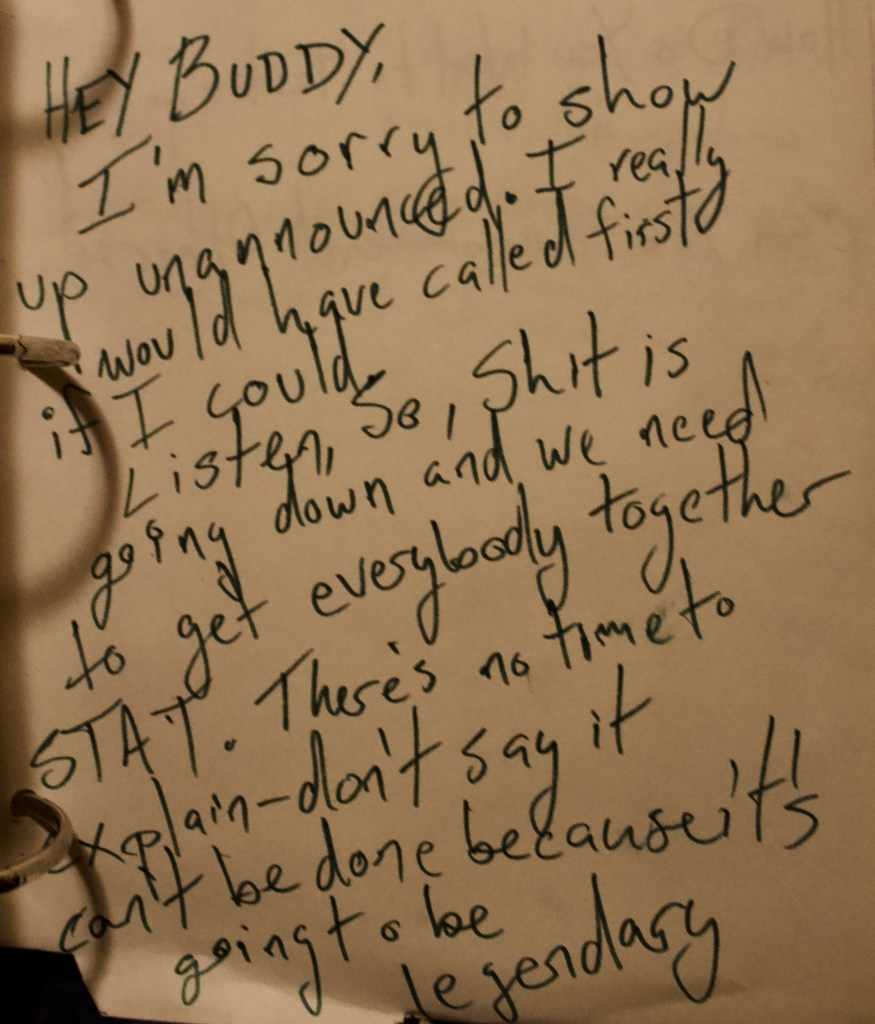 HEY BUDDY,
I'm sorry to show
up unannounced. I really
would have called first
if I could.
Listen, So, Shit is
going down and we need
to get everybody together
STAT. There's no time to
explain-don't say it
can't be done because it's
going to be
legendary